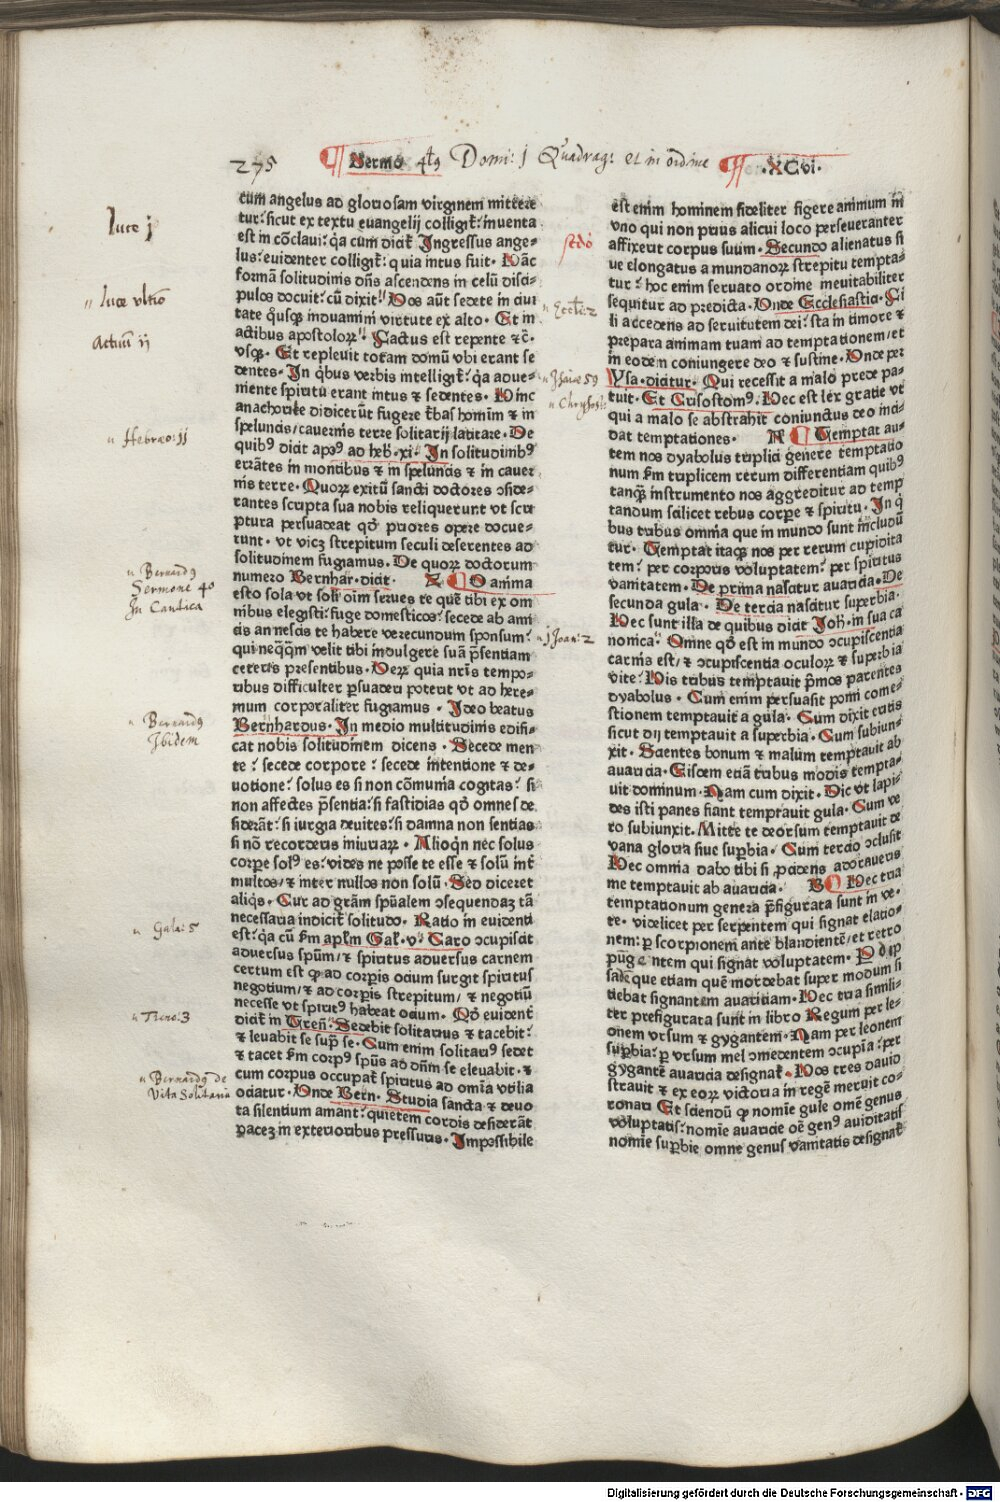 275 Sermo 4tꝰ Domi: j Quadrag: et in ordine .XCvi.
Luce j
luce vltio
Actuū ij
Hebræo: jj
Bernardꝰ
Sermone 40
In Cantica
Bernardꝰ
Ibidem
Gala: 5
Treno: 3
Bernardꝰ de
Vita Solitaria
cum angelus ad gloriosam virginem mittere
tur: sicut ex textu euangelij colligit̄: inuenta
est in cōclaui: q̇a cum dicit̄ Ingressus ange⸗
lus: euidenter colligit̄: quia intus fuit. Hāc
formā solitudinis dn̄s ascendens in celū disci⸗
pulos docuit: cū dixit: Uos aūt sedete in ciui
tate q̇usqꝫ induamini virtute ex alto. Et in
actibus apostoloꝝ: Factus est repente ⁊c̄.
vsqꝫ. Et repleuit totam domū vbi erant se
dentes. In q̇bus verbis intelligit̄: q̇a adue⸗
niente spiritu erant intus ⁊ sedentes. Hinc
anachorite didicerūt fugere t̄bas hominū ⁊ in
speluncis/cauernis terre solitarij latitare. De
quibꝰ dicit apꝰ ad heb̄. xi. In solitudinibꝰ
errātes in montibus ⁊ in speluncis ⁊ in cauer
nis terre. Quoꝝ exitū sancti doctores ꝯside⸗
rantes scripta sua nobis reliquerunt vt scri
ptura persuadeat qd̄ priores opere docue⸗
runt. vt vicꝫ strepitum seculi deserentes ad
solitudinem fugiamus. De quoꝝ doctorum
numero Bernhar. dicit. Z O anima
esto sola vt soli oīm serues te quē tibi ex om
nibus elegisti: fuge domesticos: secede ab ami
cis an nescis te habere verecundum sponsum:
qui neq̄q̄m velit tibi indulgere suā p̄sentiam
ceteris presentibus. Ueꝝ quia nr̄is tempo⸗
ribus difficulter ꝑsuaderi poterit vt ad here⸗
mum corporaliter fugiamus. Ideo beatus
Bernhardus. In medio multitudinis edifi⸗
cat nobis solitudinem dicens. Secede men
te: secede corpore: secede intentione ⁊ de⸗
uotione: solus es si non cōmunia cogitas: si
non affectes p̄sentia: si fastidias qd̄ omnes de
siderāt: si iurgia deuites: si damna non sentias
si nō recorderis iniuriaꝝ. Alioqn̄ nec solus
corꝑe solꝰ es: vides ne posse te esse ⁊ solū int̄
multos/⁊ inter nullos non solū. Sed diceret
aliq̇s. Cur ad grām spūalem ꝯsequendaꝫ tā
necessaria indicit̄ solitudo. Ratio in euidenti
est: q̇a cū ẜm apl̄m Gal̄. v: Caro ꝯcupiscit
aduersus spūm/⁊ spiritus aduersus carnem
certum est ꝙ ad corꝑis ocium surgit spiritus
negotium/⁊ ad corꝑis strepitum/⁊ negotiū
necesse vt spiritꝰ habeat ocium. Qd̄ euident̄
dicit̄ in Tren̄. Sedebit solitarius ⁊ tacebit:
⁊ leuabit se sup̄ se. Cum enim solitariꝰ sedet
⁊ tacet ẜm corpꝰ spūs ad dn̄m se eleuabit. ⁊
cum corpus occupat̄ spiritus ad omīa vtilia
ociatur. Unde Bern. Studia sancta ⁊ deuo
ta silentium amant: quietem cordis desiderāt
paceꝫ in exterioribus pressuris. Impossibile
sc̄do
Eccl̄i: 2
Isaiæ 59
Chrysos:
j Joan: 2
est enim hominem fideliter figere animum in
vno qui non prius alicui loco perseueranter
affixerit corpus suum. Secundo alienatus si
ue elongatus a mundanoꝝ strepitu tempta⸗
tur: hoc enim seruato ordine ineuitabiliter
sequitur ad predicta. Unde Ecclesiastic. Fi
li accedens ad seruitutem dei: sta in timore ⁊
prepara animam tuam ad temptationem/et
in eodem coniungere deo ⁊ sustine. Unde per
Ysa. dicitur. Qui recessit a malo preda pa⸗
tuit. Et Crisostomꝰ. Hec est lex gratie vt
qui a malo se abstrahit coniunctus deo inci⸗
dat temptationes. Temptat au⸗
tem nos dyabolus triplici genere temptatio
num ẜm triplicem rerum differentiam quibꝰ
tanq̄ instrumento nos aggreditur ad temp
tandum scilicet rebus corꝑe ⁊ spiritu. In q̇
bus tribus omnia que in mundo sunt includū
tur. Temptat itaqꝫ nos per rerum cupidita
tem: per corporis voluptatem: per spiritus
vanitatem. De prima nascitur auaricia. De
secunda gula. De tercia nascitur superbia.
Hec sunt illa de quibus dicit Joh̄. in sua ca
nonica. Omne qd̄ est in mundo ꝯcupiscentia
carnis est/⁊ ꝯcupiscentia oculoꝝ ⁊ superbia
vite: His tribus temptauit p̄mos parentes
dyabolus. Cum enim persuasit pomi come⸗
stionem temptauit a gula. Cum dixit eritis
sicut dij temptauit a superbia. Cum subiun⸗
xit. Scientes bonum ⁊ malum temptauit ab
auaricia. Eisdem etiā tribus modis tempta⸗
uit dominum. Nam cum dixit. Dic vt lapi⸗
des isti panes fiant temptauit gula. Cum ve
ro subiunxit. Mitte te deorsum temptauit de
vana gloria siue suꝑbia. Cum tercio ꝯclusit
Hec omnia dabo tibi si ꝓcidens adoraueris
me temptauit ab auaricia. Hec tria
temptationum genera p̄figurata sunt in ve⸗
te. videlicet per serpentem qui signat elatio⸗
nem: ꝑ scorpionem ante blandientē/et retro
pūgentem qui signat voluptatem. P dip
sadē que etiam quē mordebat super modum si
tiebat signantem auariciam. Hec tria simili⸗
ter prefigurata sunt in libro Regum per le⸗
onem vrsum ⁊ gygantem. Nam per leonem
suꝑbia: ꝑ vrsum mel ꝯmedentem ꝯcupīa: per
gygantē auaricia designat̄. Hos tres dauid
strauit ⁊ ex eoꝝ victoria in regē meruit co⸗
ronari Et sciendū ꝙ nomīe gule omē genus
voluptatis: nomīe auaricie oē genꝰ auiditatis
nomīe suꝑbie omne genus vanitatis designat̄
Digitalisierung gefördert durch die Deutsche Forschungsgemeinschaft - DFG